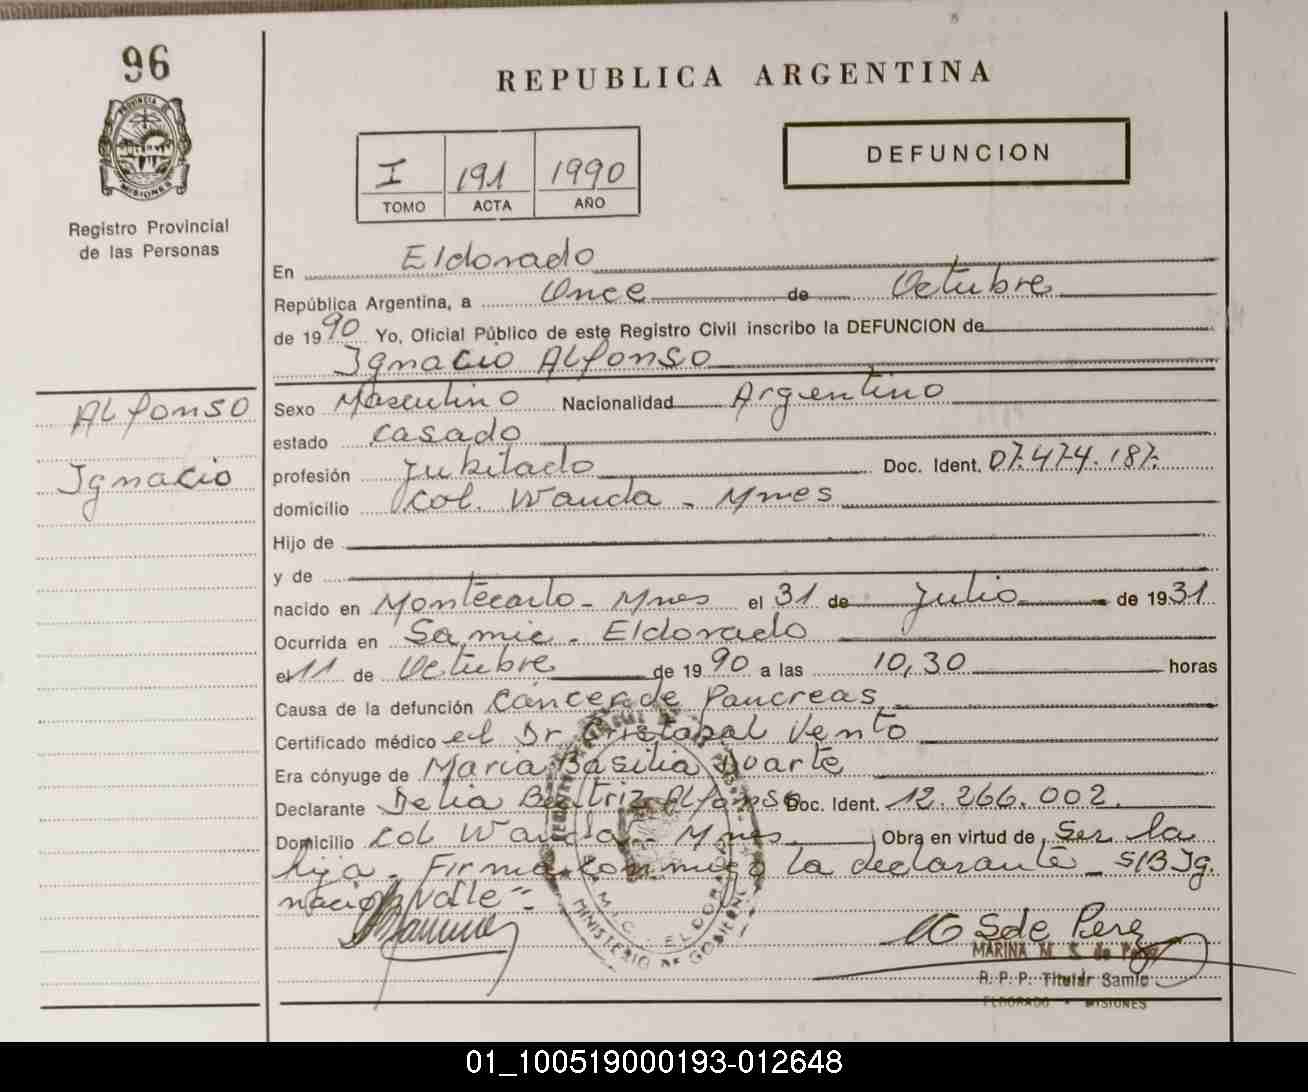 96
PROVINCIA DE
MISIONES
Registro Provincial
de las Personas
Alfonso
Ignacio
REPUBLICA ARGENTINA
I 191 1990
TOMO ACTA AÑO
DEFUNCION
En Eldorado
República Argentina, a Once de Octubre
de 1990 Yo, Oficial Público de este Registro Civil inscribo la DEFUNCION de
Ignacio Alfonso
Sexo Masculino Nacionalidad Argentino
estado casado
profesión Jubilado Doc. Ident. 07.474.187.
domicilio Col. Wanda - Mnes
Hijo de
y de
nacido en Montecarlo - Mnes el 31 de Julio de 1931
Ocurrida en Samic - Eldorado
el 11 de Octubre de 1990 a las 10,30 horas
Causa de la defunción Cáncer de Pancreas
Certificado médico el Dr Cristobal Vento
Era cónyuge de Maria Basilia Duarte
Declarante Delia Beatriz Alfonso Doc. Ident. 12.266.002.
Domicilio Col Wanda - Mnes Obra en virtud de Ser la
hija - Firma conmigo la declarante - S/B Ig.
nacio Valle =
S de Perez
MARINA M. S. de Perez
R. P. P. Titular Samic
ELDORADO - MISIONES
S.A.M.I.C. - ELDORADO
MINISTERIO DE GOBIERNO
01_100519000193-012648